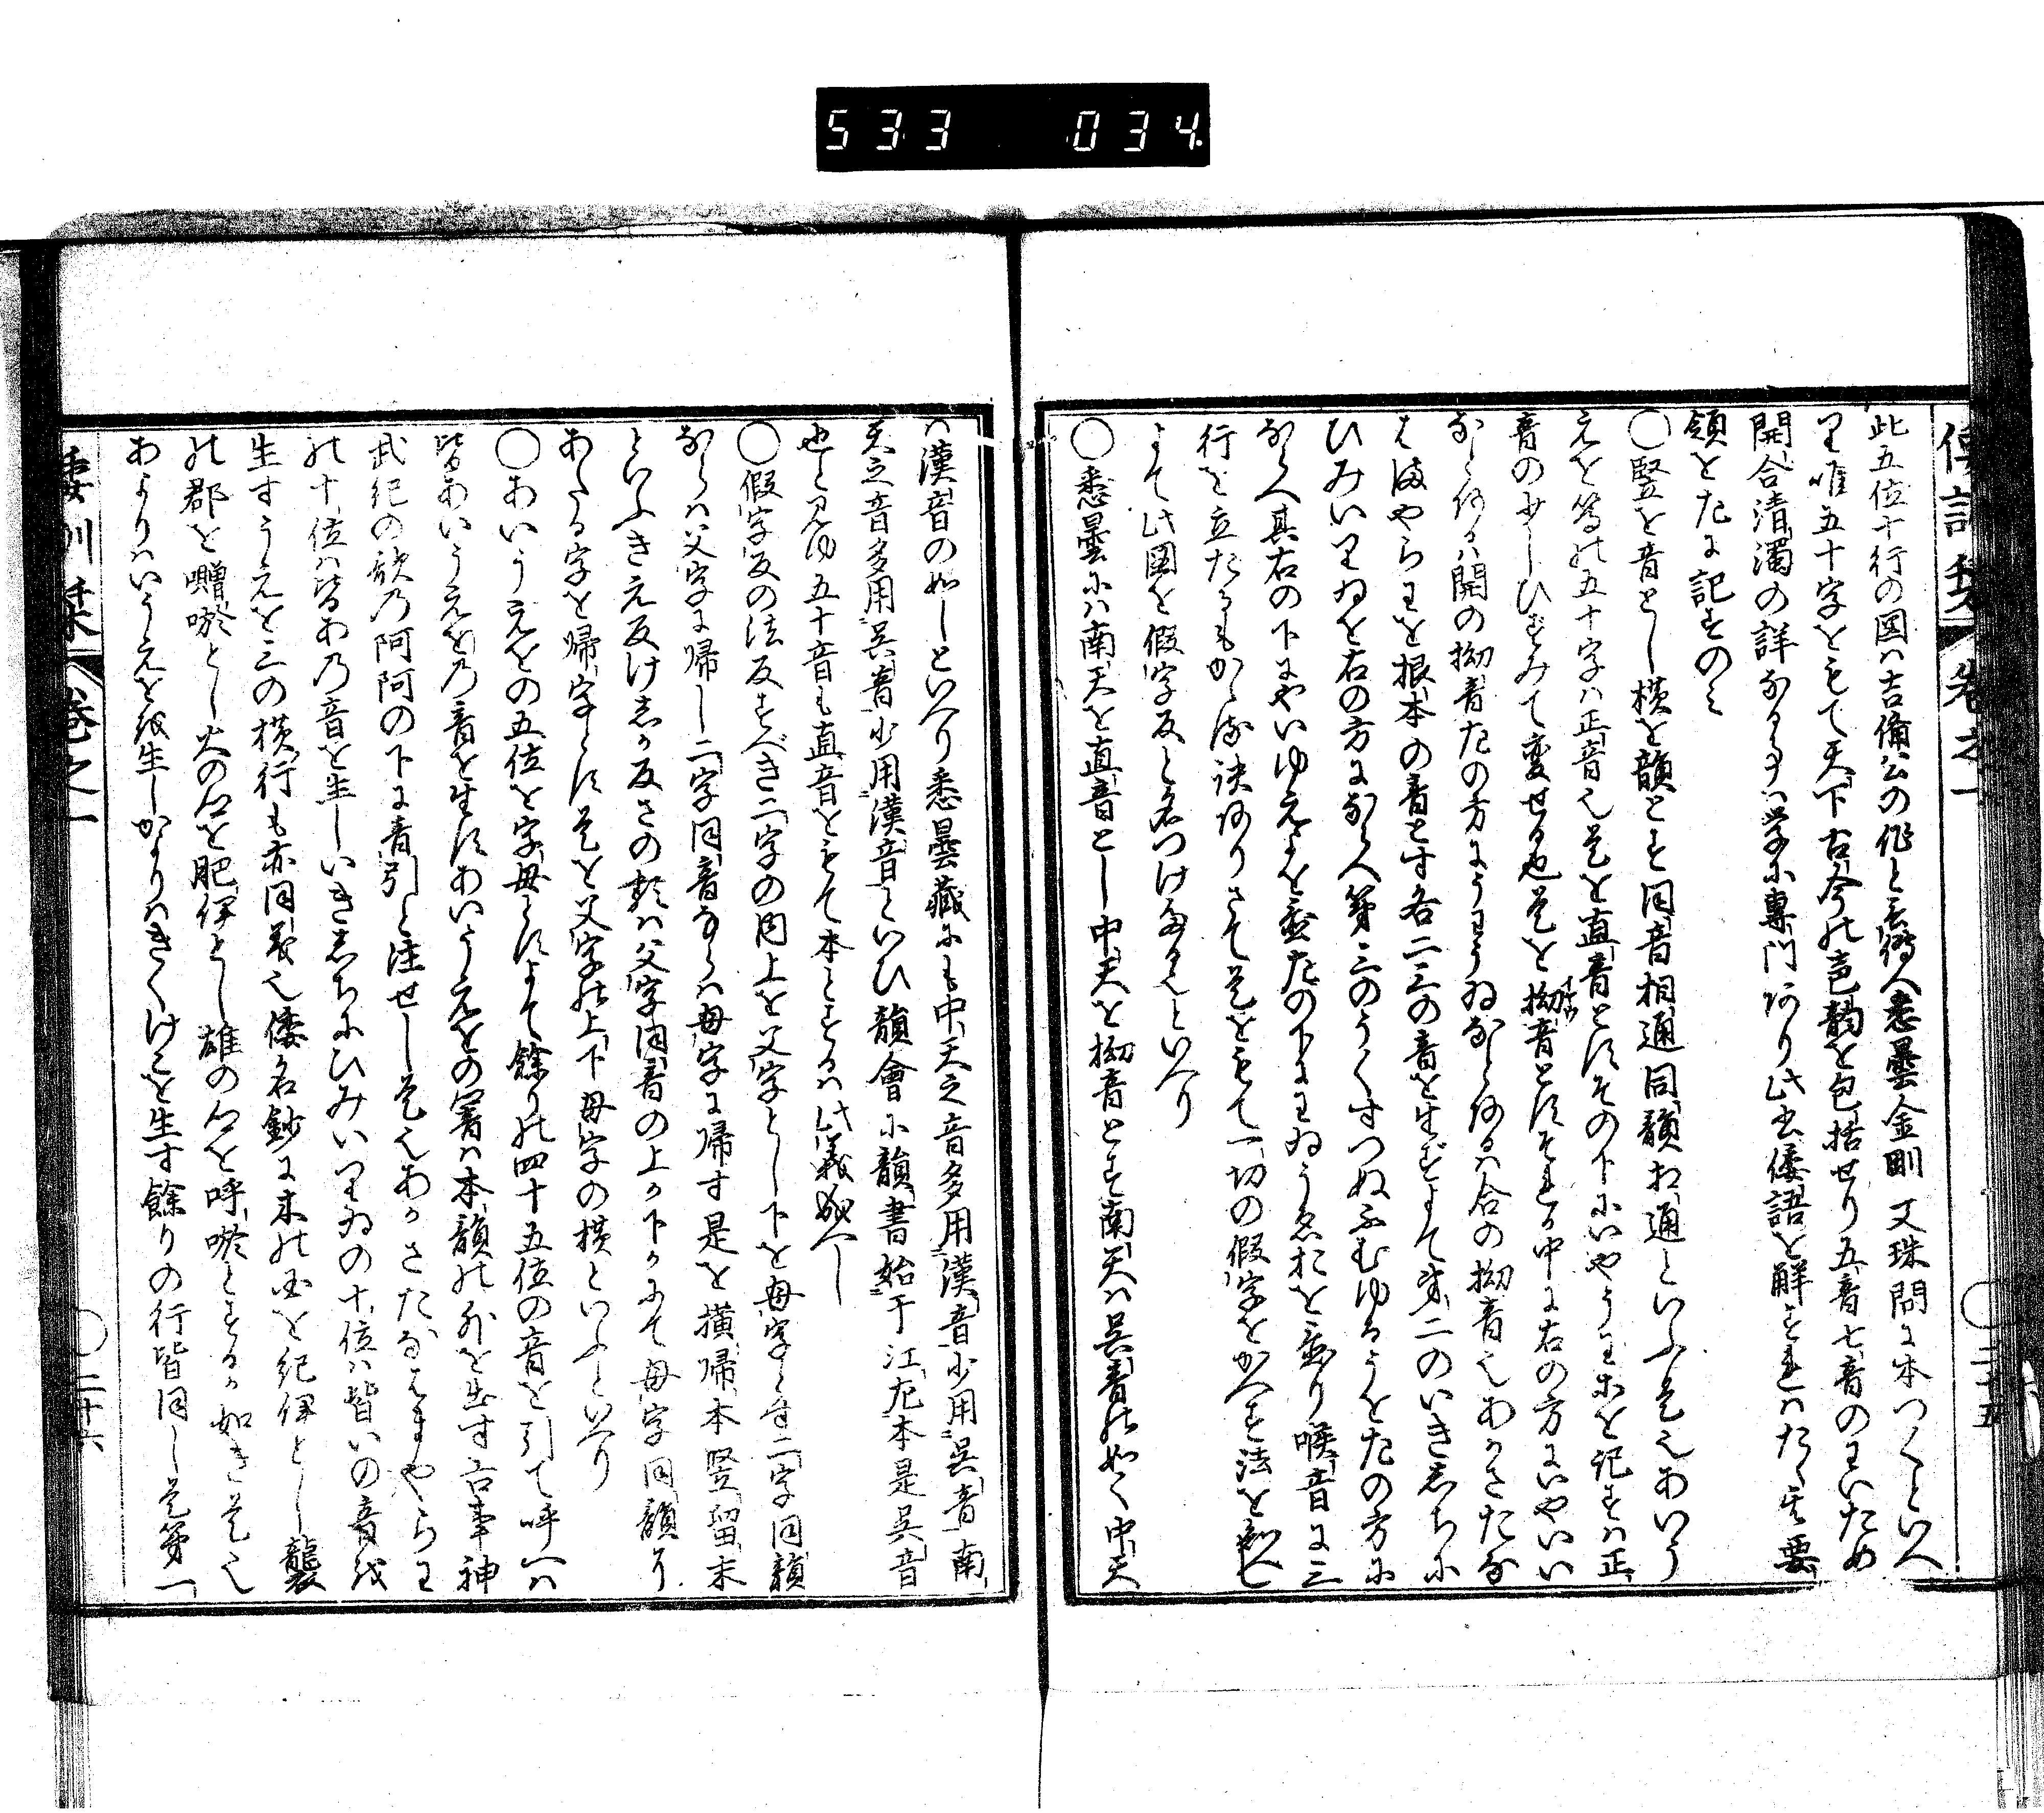 533 034
倭訓栞 卷之一 ○二十五
此五位十行の図ハ吉備公の作と云傳へ悉曇金剛文珠問に本つくといへ
り唯五十字をもて天下古今の声韻を包括せり五音七音のわいため
開合清濁の詳なる事ハ学に專門あり此書倭語を解すれハたゝ其要
領を左に記すのミ
○竪を音とし横を韻とす同音相通同韻相通といふ是也あいう
えを等の五十字ハ正音也是を直音とすその下にいやうわ等を記すハ正
音の少しひずみて変せる也是を拗音とすそれか中に右の方にいやいい
なとあるハ開の拗音左の方にうわうゐなとあるハ合の拗音也あかさたな
はまやらわを根本の音とす各二三の音を生ずよて第二のいきしちに
ひみいりゐを右の方にならへ第三のうくすつぬふむゆるうを左の方に
ならへ其右の下にやいゆえよを並左の下にわゐうゑおを並り喉音に三
行を立たるもかゝる訣ありさて是をもて一切の假字をかへす法を知へし
よて此図を假字反と名つけたる也といへり
○悉曇にハ南天を直音とし中天を拗音とす南天ハ呉音の如く中天
ハ漢音の如しといへり悉曇藏にも中天之音多用漢音少用呉音南
天之音多用呉音少用漢音といひ韻會に韻書始于江左本是呉音
也と見ゆ五十音も直音をもて本とするハ此義成へし
○假字反の法反すべき二字の内上を父字とし下を母字とす二字同韻
ならハ父字に帰し二字同音ならハ母字に帰す是を横帰本竪留末
といふきえ反けしか反さの類ハ父字同音の上か下かにて母字同韻に
あたる字を帰字とす是を父字の上下母字の横といふといへり
○あいうえをの五位を字母とすよて餘りの四十五位の音を引て呼ハ
皆あいうえをの音を生すあいうえをの署ハ本韻の外を出す古事神
武紀の歌乃阿阿の下に音引と注せし是也あかさたなはまやらわ
の十位ハ皆あ乃音を生しいきしちにひみいりゐの十位ハ皆いの音を
生すうえを三の横行も亦同義也倭名鈔に木の国を紀伊とし襲
の郡を囎唹とし火の名を肥伊とし雄の名を呼唹とするか如き是也
あよりハいうえをを生しかよりハきくけこを生す餘りの行皆同し是第一
倭訓栞 卷之一 ○二十六